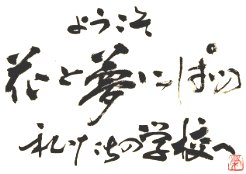 ようこそ
花と夢いっぱいの
私たちの学校へ